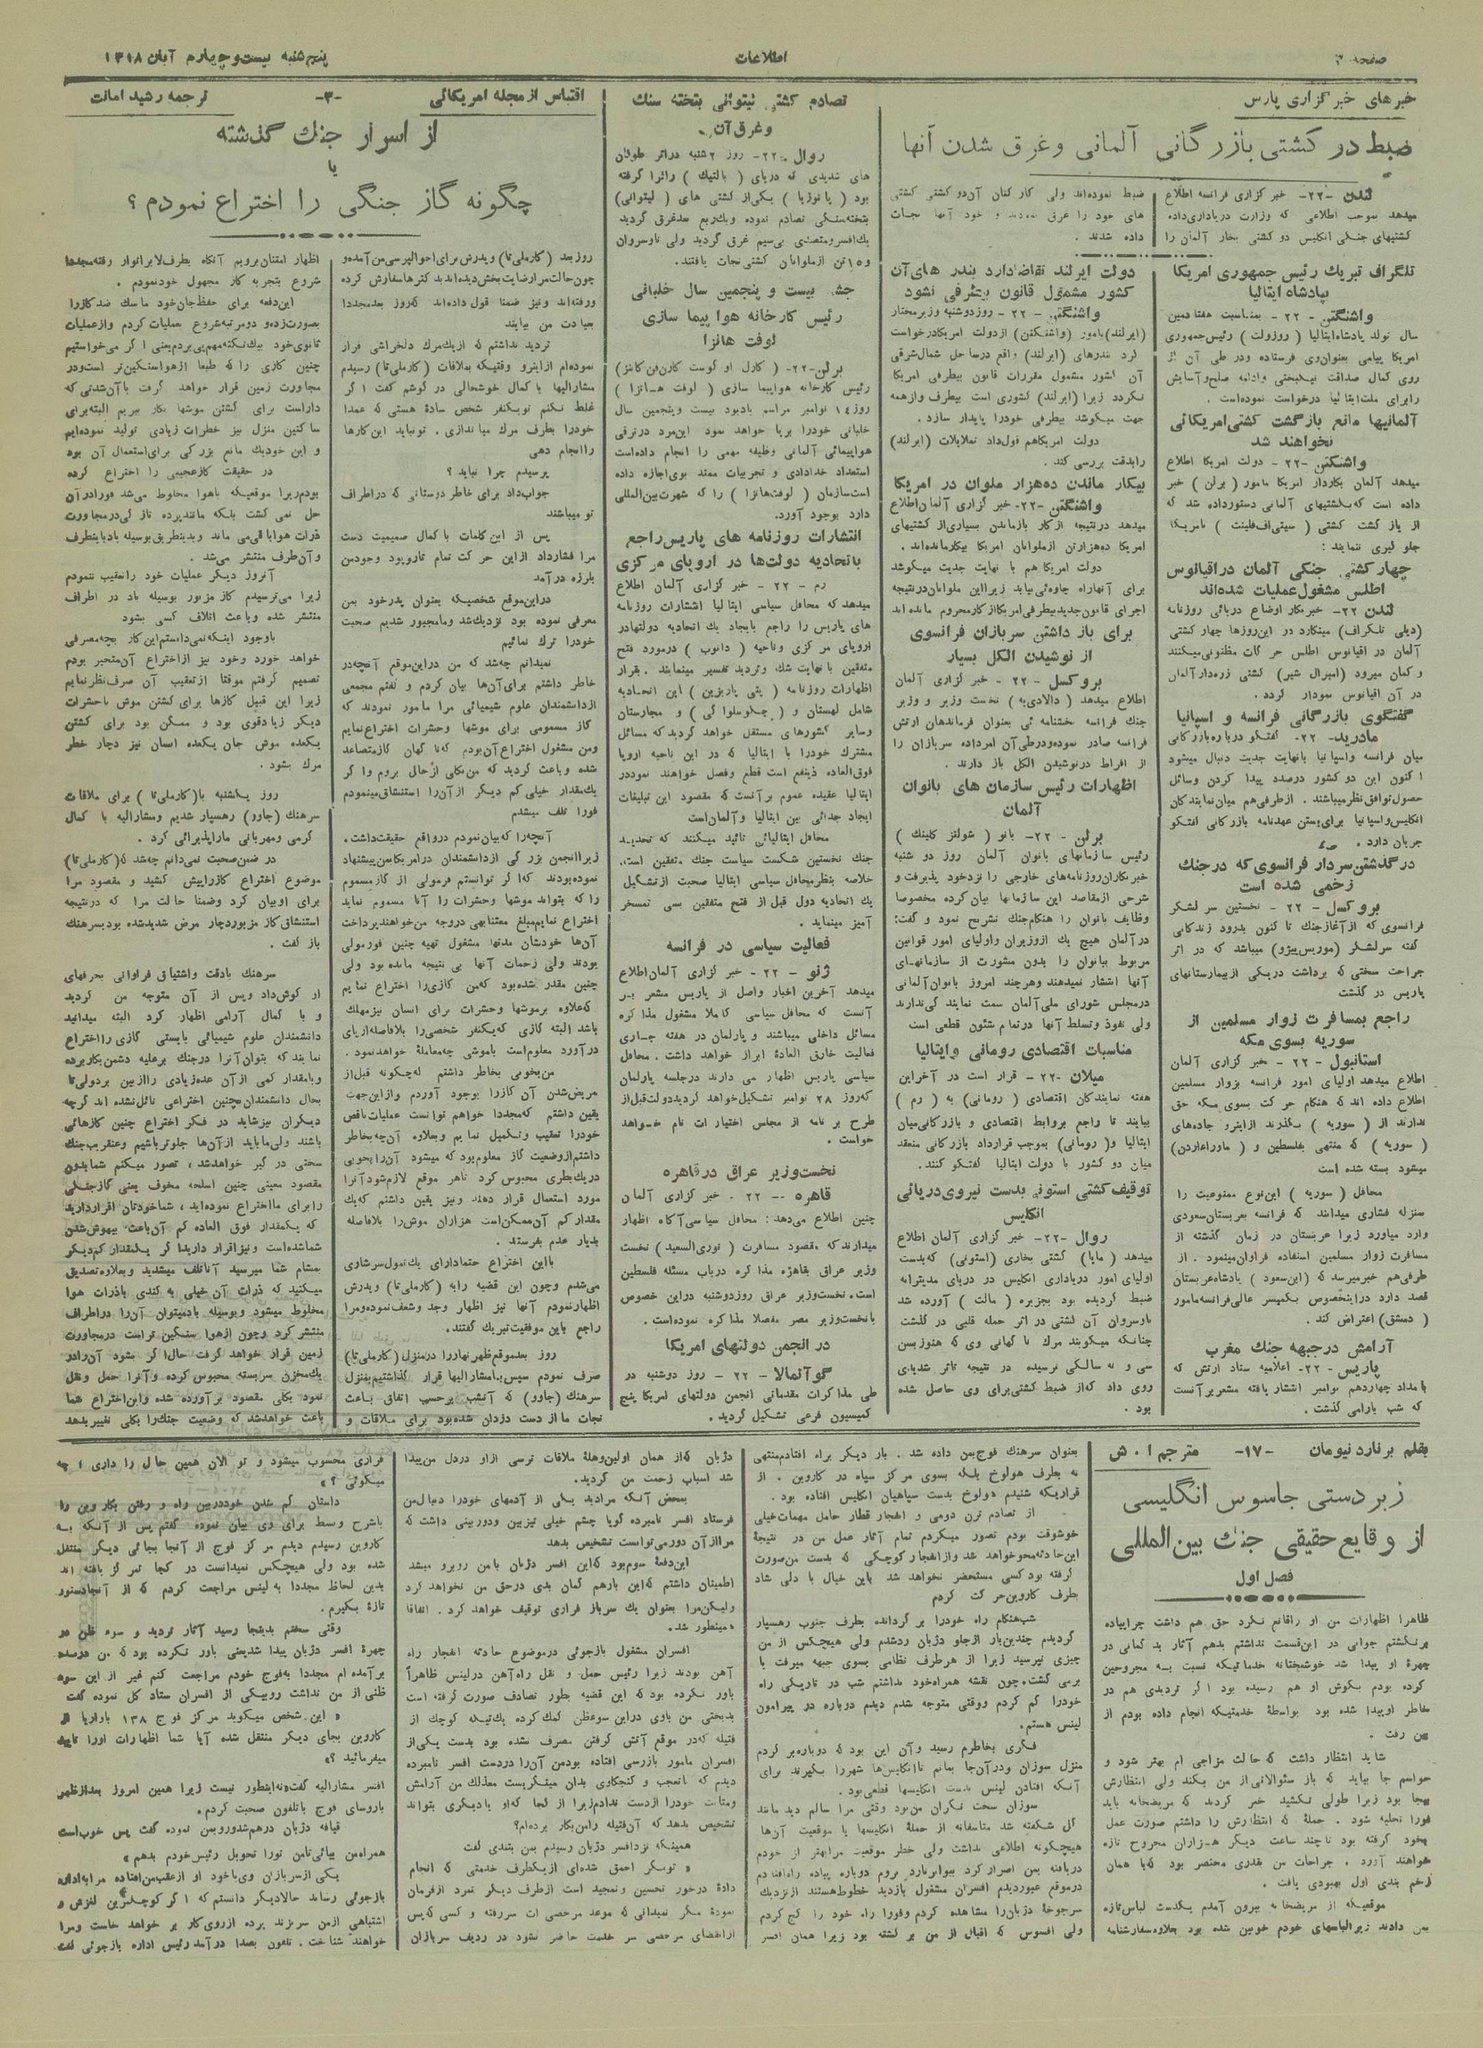 صفحه ۲
اطلاعات
پنج شنبه بیست و چهارم آبان ۱۳۱۸
خبرهای خبرگزاری پارس
ضبط در کشتی بازرگانی آلمانی و غرق شدن آنها
لندن -۲۲- خبر گزاری فرانسه اطلاع
میدهد بموجب اطلاعی که وزارت دریاداری داده
کشتیهای جنگی انگلیس دو کشتی بخار آلمان را
ضبط نموده‌اند ولی کار کنان آن دو کشتی کشتی
های خود را غرق نمودند و خود آنها نجات
داده شدند.
تلگراف تبریك رئیس جمهوری امریکا
بپادشاه ایتالیا
واشنگتن - ۲۲ - بمناسبت هفتادمین
سال تولد پادشاه ایتالیا ( روزولت ) رئیس جمهوری
امریکا پیامی بعنوان وی فرستاده و در طی آن از
روی کمال صداقت نیکبختی و ادامه صلح و آسایش
را برای ملت ایتالیا درخواست نموده است.
آلمانیها مانع بازگشت کشتی امریکائی
نخواهند شد
واشنگتن -۲۲ - دولت امریکا اطلاع
میدهد آلمان بکاردار امریکا مامور ( برلن ) خبر
داده است که بکشتیهای آلمانی دستور داده شد که
از باز گشت کشتی ( سیتی اف فلینت ) بامریکا
جلو گیری ننمایند :
چهار کشتی جنگی آلمان در اقیانوس
اطلس مشغول عملیات شده‌اند
لندن ۲۲- خبرنگار اوضاع دریائی روزنامه
(دیلی تلگراف) مینگارد در این روزها چهار کشتی
آلمان در اقیانوس اطلس حرکات مظنونی میکنند
و گمان میرود (امیرال شیر) کشتی زره‌دار آلمان
در آن اقیانوس نمودار گردد .
گفتگوی بازرگانی فرانسه و اسپانیا
مادرید- ۲۲- گفتگو درباره بازرگانی
میان فرانسه و اسپانیا بانهایت جدیت دنبال میشود
اکنون این دو کشور درصدد پیدا کردن وسائل
حصول توافق نظر میباشند . از طرفی هم میان نمایندگان
انگلیس و اسپانیا برای بستن عهدنامه بازرگانی گفتگو
جریان دارد .
درگذشتن سردار فرانسوی که در جنك
زخمی شده است
بروکسل - ۲۲ - نخستین سر لشکر
فرانسوی که از آغاز جنك تا کنون بدرود زندگانی
گفته سرلشگر (موریس پیزو) میباشد که در اثر
جراحت سختی که برداشت در یکی از بیمارستانهای
پاریس در گذشت
راجع بمسافرت زوار مسلمین از
سوریه بسوی مکه
استانبول - ۲۲ - خبر گزاری آلمان
اطلاع میدهد اولیای امور فرانسه بزوار مسلمین
اطلاع داده اند که هنگام حرکت بسوی مکه حق
ندارند از ( سوریه ) بگذرند ازاینرو جاده‌های
( سوریه ) که منتهی بفلسطین و ( ماوراء اردن)
میشود بسته شده است
محافل ( سوریه ) این نوع ممنوعیت را
بمنزله فشاری میدانند که فرانسه بعربستان سعودی
وارد میاورد زیرا عربستان در زمان گذشته از
مسافرت زوار مسلمین استفاده فراوان مینمود . از
طرفی هم خبر میرسد که (ابن سعود ) پادشاه عربستان
قصد دارد در اینخصوص بکمیسر عالی فرانسه مامور
( دمشق) اعتراض کند .
آرامش در جبهه جنك مغرب
پاریس - ۲۲- اعلامیه ستاد ارتش که
بامداد چهاردهم نوامبر انتشار یافته مشعر برآنست
که شب بآرامی گذشت .
دولت ایرلند تقاضا دارد بندر های آن
کشور مشمول قانون بیطرفی نشود
واشنگتن - ۲۲ - روز دوشنبه وزیر مختار
(ایرلند) مامور (واشنگتن) از دولت امریکا درخواست
کرد بندرهای (ایرلند) واقع در ساحل شمال شرقی
آن کشور مشمول مقررات قانون بیطرفی امریکا
نگردد زیرا (ایرلند) کشوری است بیطرف و از همه
جهت میکوشد بیطرفی خود را پایدار سازد .
دولت امریکا هم قول داد تمایلات (ایرلند)
را بدقت بررسی کند .
بیکار ماندن ده هزار ملوان در امریکا
واشنگتن -۲۲- خبر گزاری آلمان اطلاع
میدهد در نتیجه از کار بازماندن بسیاری از کشتیهای
امریکا ده هزار تن از ملوانان امریکا بیکار مانده‌اند .
دولت امریکا هم با نهایت جدیت میکوشد
برای آنها راه چاره‌ئی بیابد زیرا این ملوانان در نتیجه
اجرای قانون جدید بیطرفی امریکا از کار محروم مانده اند
برای باز داشتن سربازان فرانسوی
از نوشیدن الکل بسیار
بروکسل - ۲۲ - خبر گزاری آلمان
اطلاع میدهد ( دالادیه ) نخست وزیر و وزیر
جنك فرانسه بخشنامه ئی بعنوان فرماندهان ارتش
فرانسه صادر نموده و در طی آن امر داده سربازان را
از افراط در نوشیدن الکل باز دارند .
اظهارات رئیس سازمان های بانوان
آلمان
برلن - ۲۲- بانو ( شولتز کلینك )
رئیس سازمانهای بانوان آلمان روز دو شنبه
خبرنگاران روزنامه‌های خارجی را نزد خود پذیرفت و
شرحی از مقاصد این سازمانها بیان کرده مخصوصا
وظایف بانوان را هنگام جنك تشریح نمود و گفت:
در آلمان هیچ یك از وزیران و اولیای امور قوانین
مربوط ببانوان را بدون مشورت از سازمانهای
آنها انتشار نمیدهند و هر چند امروز بانوان آلمانی
در مجلس شورای ملی آلمان سمت نمایندگی ندارند
ولی نفوذ و تسلط آنها در تمام شئون قطعی است
مناسبات اقتصادی رومانی و ایتالیا
میلان -۲۲- قرار است در آخر این
هفته نمایندگان اقتصادی ( رومانی ) به ( رم )
بیایند تا راجع بروابط اقتصادی و بازرگانی میان
ایتالیا و( رومانی ) بموجب قرارداد بازرگانی منعقد
میان دو کشور با دولت ایتالیا گفتگو کنند.
توقیف کشتی استونی بدست نیروی دریائی
انگلیس
روال -۲۲- خبر گزاری آلمان اطلاع
میدهد ( مایا) کشتی بخاری (استونی) که بدست
اولیای امور دریاداری انگلیس در دریای مدیترانه
ضبط گردیده بود بجزیره ( مالت ) آورده شد
ناوسروان آن کشتی در اثر حمله قلبی در گذشت
چنانکه میگویند مرك نا گهانی وی که هنوز بسن
سی و نه سالگی نرسیده در نتیجه تاثر شدیدی
روی داد که از ضبط کشتی برای وی حاصل شده
بود .
تصادم کشتی لیتوانی بتخته سنك
و غرق آن
روال -۲۲- روز ۲ شنبه در اثر طوفان
های شدیدی که دریای ( بالتیك ) را فرا گرفته
بود یکی از کشتی های (لیتوانی)
بتخته سنگی تصادم نموده ویك ربع بعد غرق گردید
یك افسر و متصدی بی‌سیم غرق گردید ولی ناوسروان
و ۱۵ تن از ملوانان کشتی نجات یافتند.
جشن بیست و پنجمین سال خلبانی
رئیس کارخانه هوا پیما سازی
لوفت هانزا
برلن-۲۲- ( کارل او گوست کارن فن کانتز)
رئیس کارخانه هواپیما سازی ( لوفت هانزا )
روز ۱۴ نوامبر مراسم یادبود بیست و پنجمین سال
خلبانی خود را برپا خواهد نمود این مرد در ترقی
هواپیمائی آلمانی وظیفه مهمی را انجام داده است
استعداد خدادادی و تجربیات ممتد بوی اجازه داده
است سازمان ( لوفت هانزا ) را که شهرت بین المللی
دارد بوجود آورد.
انتشارات روزنامه های پاریس راجع
باتحادیه دولت‌ها در اروپای مرکزی
رم - ۲۲ - خبر گزاری آلمان اطلاع
میدهد که محافل سیاسی ایتالیا انتشارات روزنامه
های پاریس را راجع بایجاد یك اتحادیه دولتها در
اروپای مرکزی و ناحیه ( دانوب ) در مورد فتح
متفقین با نهایت شك و تردید تفسیر مینمایند . بقرار
اظهارات روزنامه ( پتی پاریزین ) این اتحادیه
شامل لهستان و ( چکوسلواکی ) و مجارستان
و سایر کشورهای مستقل خواهد گردید که مسائل
مشترك خود را با ایتالیا که در این ناحیه اروپا
فوق العاده ذینفع است قطع و فصل خواهند نمود در
ایتالیا عقیده عموم بر آنست که مقصود این تبلیغات
ایجاد جدائی بین ایتالیا و آلمان است
محافل ایتالیائی تائید میکنند که تحدید
جنك نخستین شکست سیاست جنك متفقین است.
خلاصه بنظر محافل سیاسی ایتالیا صحبت از تشکیل
یك اتحادیه دول قبل از فتح متفقین بسی تمسخر
آمیز مینماید .
فعالیت سیاسی در فرانسه
ژنو - ۲۲ - خبر گزاری آلمان اطلاع
میدهد آخرین اخبار واصل از پاریس مشعر بر
آنست که محافل سیاسی کاملا مشغول مذاکره
مسائل داخلی میباشند و پارلمان در هفته جاری
فعالیت خارق العادهٔ ابراز خواهد داشت . محافل
سیاسی پاریس اظهار می دارند در جلسه پارلمان
که روز ۲۸ نوامبر تشکیل خواهد گردید دولت قبل از
طرح برنامه از مجلس اختیارات تام خواهد
خواست .
نخست وزیر عراق در قاهره
قاهره -- ۲۲ - خبر گزاری آلمان
چنین اطلاع می‌دهد: محافل سیاسی آگاه اظهار
میدارند که مقصود مسافرت ( نوری السعید ) نخست
وزیر عراق بقاهره مذاکره درباب مسئله فلسطین
است. نخست وزیر عراق روز دوشنبه در این خصوص
با نخست وزیر مصر مفصلا مذاکره نموده است.
در انجمن دولتهای امریکا
گوآتمالا - ۲۲ - روز دوشنبه در
طی مذاکرات مقدماتی انجمن دولتهای امریکا پنج
کمیسیون فرعی تشکیل گردید .
اقتباس از مجله امریکائی
-۳-
ترجمه رشید امانت
از اسرار جنك گذشته
یا
چگونه گاز جنگی را اختراع نمودم ؟
روز بعد (کارملی تا) و پدرش برای احوالپرسی من آمده و
چون حالت مرا رضایت بخش دیده‌اند بد کترها سفارش کرده
و رفته‌اند و نیز ضمنا قول داده‌اند که روز بعد مجددا
بعیادت من بیایند
تردید نداشتم که از یك مرك دلخراشی فرار
نموده‌ام از اینرو وقتیکه بملاقات (کارملی تا) رسیدم
مشارالیها با کمال خوشحالی در گوشم گفت اگر
غلط نکنم تو یکنفر شخص سادهٔ هستی که عمدا
خود را بطرف مرك میاندازی . تو نباید این کارها
را انجام دهی
پرسیدم چرا نباید ؟
جواب داد برای خاطر دوستانی که در اطراف
تو میباشند
پس از این کلمات با کمال صمیمیت دست
مرا فشار داد از این حرکت تمام تار و پود وجود من
بلرزه درآمد
در این موقع شخصیکه بعنوان پدر خود بمن
معرفی نموده بود نزدیك شد و ما مجبور شدیم صحبت
خود را ترك نمائیم
نمیدانم چه شد که من در این موقع آنچه در
خاطر داشتم برای آن‌ها بیان کردم و گفتم مجمعی
از دانشمندان علوم شیمیائی مرا مامور نمودند که
گاز مسمومی برای موشها و حشرات اختراع نمایم
و من مشغول اختراع آن بودم که نا گهان گاز متصاعد
شده و باعث گردید که من بکلی از حال بروم و اگر
یك مقدار خیلی کم دیگر از آن را استنشاق مینمودم
فورا تلف میشدم
آنچه را که بیان نمودم در واقع حقیقت داشت.
زیرا انجمن بزرگی از دانشمندان در امریکا بمن پیشنهاد
نموده بودند که اگر توانستم فرمولی از گاز مسموم
را که بتواند موشها و حشرات را آنا مسموم نماید
اختراع نمایم مبلغ معتنابهی در وجه من خواهند پرداخت
آن‌ها خودشان مدتها مشغول تهیه چنین فورمولی
بودند ولی زحمات آنها بی نتیجه مانده بود ولی
چنین مقدر شده بود که من گازی را اختراع نمایم
که علاوه بر موشها و حشرات برای انسان نیز مهلك
باشد البته گازی که یکنفر شخصی را بلافاصله از پای
درآورد معلوم است با موشی چه معاملهٔ خواهد نمود .
من بخوبی بخاطر داشتم که چگونه قبل از
مریض شدن آن گاز را بوجود آوردم و از این جهت
یقین داشتم که مجددا خواهم توانست عملیات ناقص
خود را تعقیب و تکمیل نمایم و بعلاوه آنچه بخاطر
داشتم از وضعیت گاز معلوم بود که میشود آن را بخوبی
در یك بطری محبوس کرد تا هر موقع لازم شود آنرا
مورد استعمال قرار دهند و نیز یقین داشتم که یك
مقدار کم آن ممکن است هزاران موش را بلافاصله
بدیار عدم بفرستد .
با این اختراع حتما دارای یك پول سرشاری
می‌شدم و چون این قضیه را به (کارملی تا) و پدرش
اظهار نمودم آنها نیز اظهار وجد و شعف نموده و مرا
راجع باین موفقیت تبریك گفتند.
روز بعد موقع ظهر نهار را در منزل (کارملی تا)
صرف نمودم سپس با مشارالیها قرار گذاشتیم بمنزل
سرهنك (جاوو) که آنشب برحسب اتفاق باعث
نجات ما از دست دزدان شده بود برای ملاقات و
اظهار امتنان برویم آنگاه بطرف لابراتوار رفته مجددا
شروع بتجربه کار مجهول خود نمودم .
این دفعه برای حفظ جان خود ماسك ضد گاز را
بصورت زده و دو مرتبه شروع بعملیات کردم و از عملیات
ثانوی خود بیك نکته مهم پی بردم یعنی اگر می‌خواستیم
چنین گازی را که طبعا از هوا سنگین تر است و در
مجاورت زمین قرار خواهد گرفت با آن شدتی که
داراست برای کشتن موشها بکار ببریم البته برای
ساکنین منزل نیز خطرات زیادی تولید نموده‌ایم
و این خود یك مانع بزرگی برای استعمال آن بود
در حقیقت گاز عجیبی را اختراع کرده
بودم زیرا موقعیکه باهوا مخلوط می‌شد فورا در آن
حل نمی گشت بلکه مانند پرده نازکی در مجاورت
ذرات هوا باقی می ماند و بدینطریق بوسیله باد باینطرف
و آنطرف منتشر می‌شد .
آنروز دیگر عملیات خود را تعقیب ننمودم
زیرا می‌ترسیدم گاز مزبور بوسیله باد در اطراف
منتشر شده و باعث اتلاف کسی بشود
باوجود اینکه نمی‌دانستم این کار بچه مصرفی
خواهد خورد و خود نیز از اختراع آن متحیر بودم
تصمیم گرفتم موقتا از تعقیب آن صرف نظر نمایم
زیرا این قبیل گازها برای کشتن موش یا حشرات
دیگر زیاد قوی بود و ممکن بود برای کشتن
یکعده موش جان یکعده انسان نیز دچار خطر
مرك بشود .
روز یکشنبه با(کارملی تا ) برای ملاقات
سرهنك (جاوو) رهسپار شدیم و مشارالیه با کمال
گرمی و مهربانی ما را پذیرائی کرد .
در ضمن صحبت نمی‌دانم چه شد که (کارملی تا)
موضوع اختراع گاز را پیش کشید و مقصود مرا
برای او بیان کرد و ضمنا حالت مرا که در نتیجه
استنشاق گاز مزبور دچار مرض شدید شده بود بسرهنك
باز گفت .
سرهنك بادقت و اشتیاق فراوانی بحرفهای
او گوش داد و پس از آن متوجه من گردید
و با کمال آرامی اظهار کرد البته میدانید
دانشمندان علوم شیمیائی بایستی گازی را اختراع
نمایند که بتوان آنرا در جنك بر علیه دشمن بکار برده
و با مقدار کمی از آن عده زیادی را از بین برد ولی تا
بحال دانشمندان بچنین اختراعی نائل نشده اند گرچه
دیگران نیز شاید در فکر اختراع چنین گازهائی
باشند ولی ما باید از آن‌ها جلوتر باشیم و عنقریب جنك
سختی در گیر خواهد شد ، تصور میکنم شما بدون
مقصود معینی چنین اسلحه مخوف یعنی گاز جنگی
را برای ما اختراع نموده‌اید ، شما خودتان اقرار دارید
که یکمقدار فوق العاده کم آن باعث بیهوش شدن
شما شده است و نیز اقرار دارید اگر یکمقدار کم دیگر
بمشام شما میرسید آنا تلف میشدید و بعلاوه تصدیق
میکنید که ذرات آن خیلی به کندی باذرات هوا
مخلوط میشود و بوسیله باد میتوان آن را در اطراف
منتشر کرد و چون از هوا سنگین تر است در مجاورت
زمین قرار خواهد گرفت حال اگر بشود آن را در
یك مخزن سربسته محبوس کرده و آنرا حمل و نقل
نمود بکلی مقصود برآورده شده و این اختراع شما
باعث خواهد شد که وضعیت جنك را بکلی تغییر بدهد
بقلم برنارد نیومان
-۱۷-
مترجم ا . ش
زبردستی جاسوس انگلیسی
از وقایع حقیقی جنك بین المللی
فصل اول
ظاهرا اظهارات من او را قانع نکرد حق هم داشت چرا پیاده
برنگشتم جوابی در این قسمت نداشتم بدهم آثار بد گمانی در
چهرهٔ او پیدا شد خوشبختانه خدماتیکه نسبت به مجروحین
کرده بودم بگوش او هم رسیده بود اگر تردیدی هم در
خاطر او پیدا شده بود بواسطهٔ خدمتیکه انجام داده بودم از
بین رفت .
شاید انتظار داشت که حالت مزاجی ام بهتر شود و
حواسم جا بیاید که باز سئوالاتی از من بکند ولی انتظارش
بیجا بود زیرا طولی نکشید خبر کردند که مریضخانه باید
فورا تخلیه شود . حملهٔ که انتظارش را داشتم صورت عمل
بخود گرفته بود تا چند ساعت دیگر هزاران مجروح تازه
خواهند آورد . جراحات من بقدری مختصر بود که با همان
زخم بندی اول بهبودی یافت .
موقعیکه از مریضخانه بیرون آمدم یکدست لباس تازه
بمن دادند زیرا لباسهای خودم خونین شده بود بعلاوه سفارشنامه
بعنوان سرهنك فوج بمن داده شد . بار دیگر براه افتادم منتهی
نه بطرف هولوخ بلکه بسوی مرکز سپاه در کاروین . از
قراریکه شنیدم هولوخ بدست سپاهیان انگلیس افتاده بود .
از تصادم ترن دومی و انفجار قطار حامل مهمات خیلی
خوشوقت بودم تصور میکردم تمام آثار عمل من در نتیجهٔ
این حادثه محو خواهد شد و از انفجار کوچکی که بدست من صورت
گرفته بود کسی مستحضر نخواهد شد باین خیال با دلی شاد
بطرف کاروین حرکت کردم
شب هنگام راه خود را برگردانده بطرف جنوب رهسپار
گردیدم چندین بار از جلو دژبان رد شدم ولی هیچکس از من
چیزی نپرسید زیرا از هر طرف نظامی بسوی جبهه میرفت یا
برمی گشت. چون نقشه همراه خود نداشتم شب در تاریکی راه
خود را گم کردم و وقتی متوجه شدم دیدم دوباره در پیرامون
لینس هستم.
فکری بخاطرم رسید و آن این بود که دوباره برگردم
منزل سوزان و در آن جا بمانم تا انگلیس‌ها شهر را بگیرند برای
آنکه افتادن لینس بدست انگلیسها قطعی بود.
سوزان سخت نگران من بود وقتی مرا سالم دید مانند
گل شکفته شد متاسفانه از حملهٔ انگلیسها یا موقعیت آن‌ها
هیچگونه اطلاعی نداشت ولی خطر موقعیت مرا بهتر از خودم
دریافته بمن اصرار کرد ببیوابرگردم بروم دوباره پیاده راه افتادم
در موقع عبور دیدم افسران مشغول بازدید خطوط هستند از نزدیك
سرجوخهٔ دژبان را مشاهده کردم و فورا راه خود را کج کردم
ولی افسوس که اقبال از من برگشته بود زیرا همان افسر
دژبان که از همان اولین وهلهٔ ملاقات ترسی از او در دل من پیدا
شد اسباب زحمت من گردید.
بمحض آنکه مرا دید یکی از آدمهای خود را دنبال من
فرستاد افسر نامبرده گویا چشم خیلی تیزبین و دوربینی داشت که
مرا از آن دور می‌توانست تشخیص بدهد
این دفعهٔ سوم بود که این افسر دژبان بامن روبرو میشد
اطمینان داشتم که این بار هم گمان بدی در حق من نخواهد کرد
ولیکن مرا بعنوان یك سرباز فراری توقیف خواهد کرد . اتفاقا
همینطور شد.
افسران مشغول بازجوئی در موضوع حادثه انفجار راه
آهن بودند زیرا رئیس حمل و نقل راه آهن در لینس ظاهراً
باور نکرده بود که این قضیه بطور تصادف صورت گرفته است
بدبختی من یاری در این سوءظن کمك کرده یك تیکه کوچك از
فتیله که در موقع آتش گرفتن مصرف نشده بود بدست یکی از
افسران مامور بازرسی افتاده بود من آن را در دست افسر نامبرده
دیدم که باتعجب و کنجکاوی بدان مینگریست معذلك من آرامش
و متانت خود را از دست ندادم زیرا از کجا که او یا دیگری بتواند
تشخیص بدهد که آن فتیله را من بکار برده‌ام؟
همینکه نزد افسر دژبان رسیدم بمن بتندی گفت
« تو مگر احمق شده‌ای از یکطرف خدمتی که انجام
دادهٔ درخور تحسین و تمجید است از طرف دیگر تمرد از فرمان
نمودهٔ مگر نمیدانی که موعد مرخصی ات سررفته و کسی که پس
از انقضای مرخصی سر خدمت حاضر نشود در ردیف سربازان
فراری محسوب میشود و تو الان همین حال را داری ؛ چه
میگوئی ؟ »
داستان گم شدن خود در بین راه و رفتن بکاروین را
باشرح وبسط برای وی بیان نموده گفتم پس از آنکه به
کاروین رسیدم دیدم مرکز فوج از آنجا بجائی دیگر منتقل
شده بود ولی هیچکس نمیدانست در کجا تمرکز یافته اند
بدین لحاظ مجددا به لینس مراجعت کردم که از آنجا دستور
تازه بگیرم .
وقتی سخنم بدینجا رسید آثار تردید و سوء ظن در
چهرهٔ افسر دژبان پیدا شد یعنی باور نکرده بود که من درصدد
برآمده ام مجددا بفوج خودم مراجعت کنم غیر از این سوء
ظنی از من نداشت رو بیکی از افسران ستاد کل نموده گفت
« این شخص میگوید مرکز فوج ۱۳۸ باواریا از
کاروین بجای دیگر منتقل شده آیا شما اظهارات او را تایید
میفرمائید ؟»
افسر مشارالیه گفت «نه اینطور نیست زیرا همین امروز بعد از ظهر
با رؤسای فوج باتلفون صحبت کردم»
قیافه دژبان درهم شد و رو بمن نموده گفت پس خوب است
همراه من بیائی تا من تورا تحویل رئیس خودم بدهم »
یکی از سربازان وی باخود او از عقب من افتاده مرا به اداره
بازجوئی رساند حالا دیگر دانستم که اگر کوچکترین لغزش و
اشتباهی از من سر بزند پرده از روی کار بر خواهد خاست و مرا
خواهند شناخت . تلفون بصدا درآمد رئیس اداره بازجوئی گفت